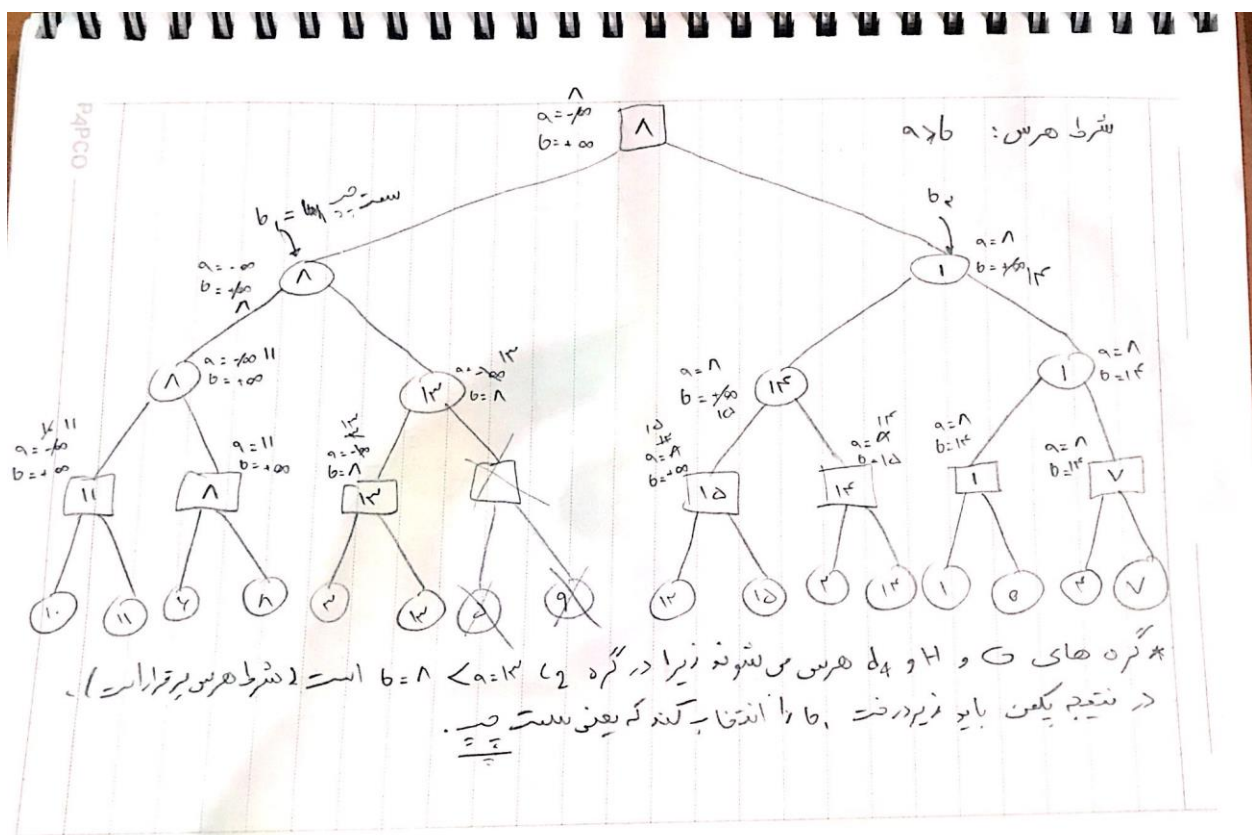 P4PCO
۸
a = -∞
b = +∞
۸
شرط هرس: a ≥ b
b₁ = سمت چپ
b₂
a = -∞
b = +∞
۸
۸
a = ۸
b = +∞ ۱۴
۱
a = -∞ ۱۱
b = +∞
۸
۱۳
a = -∞
b = ۸
۱۳
a = ۸
b = +∞
۱۵
۱۴
a = ۸
b = ۱۴
۱
۱۱
a = -∞
b = +∞
۱۱
a = ۱۱
b = +∞
۸
۱۳
a = -∞
b = ۸
۱۳
۱۵
a = ۸
b = +∞
۱۵
۱۴
a = ۸
b = ۱۵
۱۴
a = ۸
b = ۱۴
۱
a = ۸
b = ۱۴
۷
۱۰ ۱۱ ۶ ۸ ۳ ۱۳ ۵ ۹ ۱۲ ۱۵ ۲ ۱۴ ۱ ۵ ۴ ۷
* گره های G و H و d₄ هرس می شوند زیرا در گره c₂ b = ۸ < a = ۱۳ است (شرط هرس برقرار است).
در نتیجه پکمن باید زیردرخت b₁ را انتخاب کند که یعنی سمت چپ.